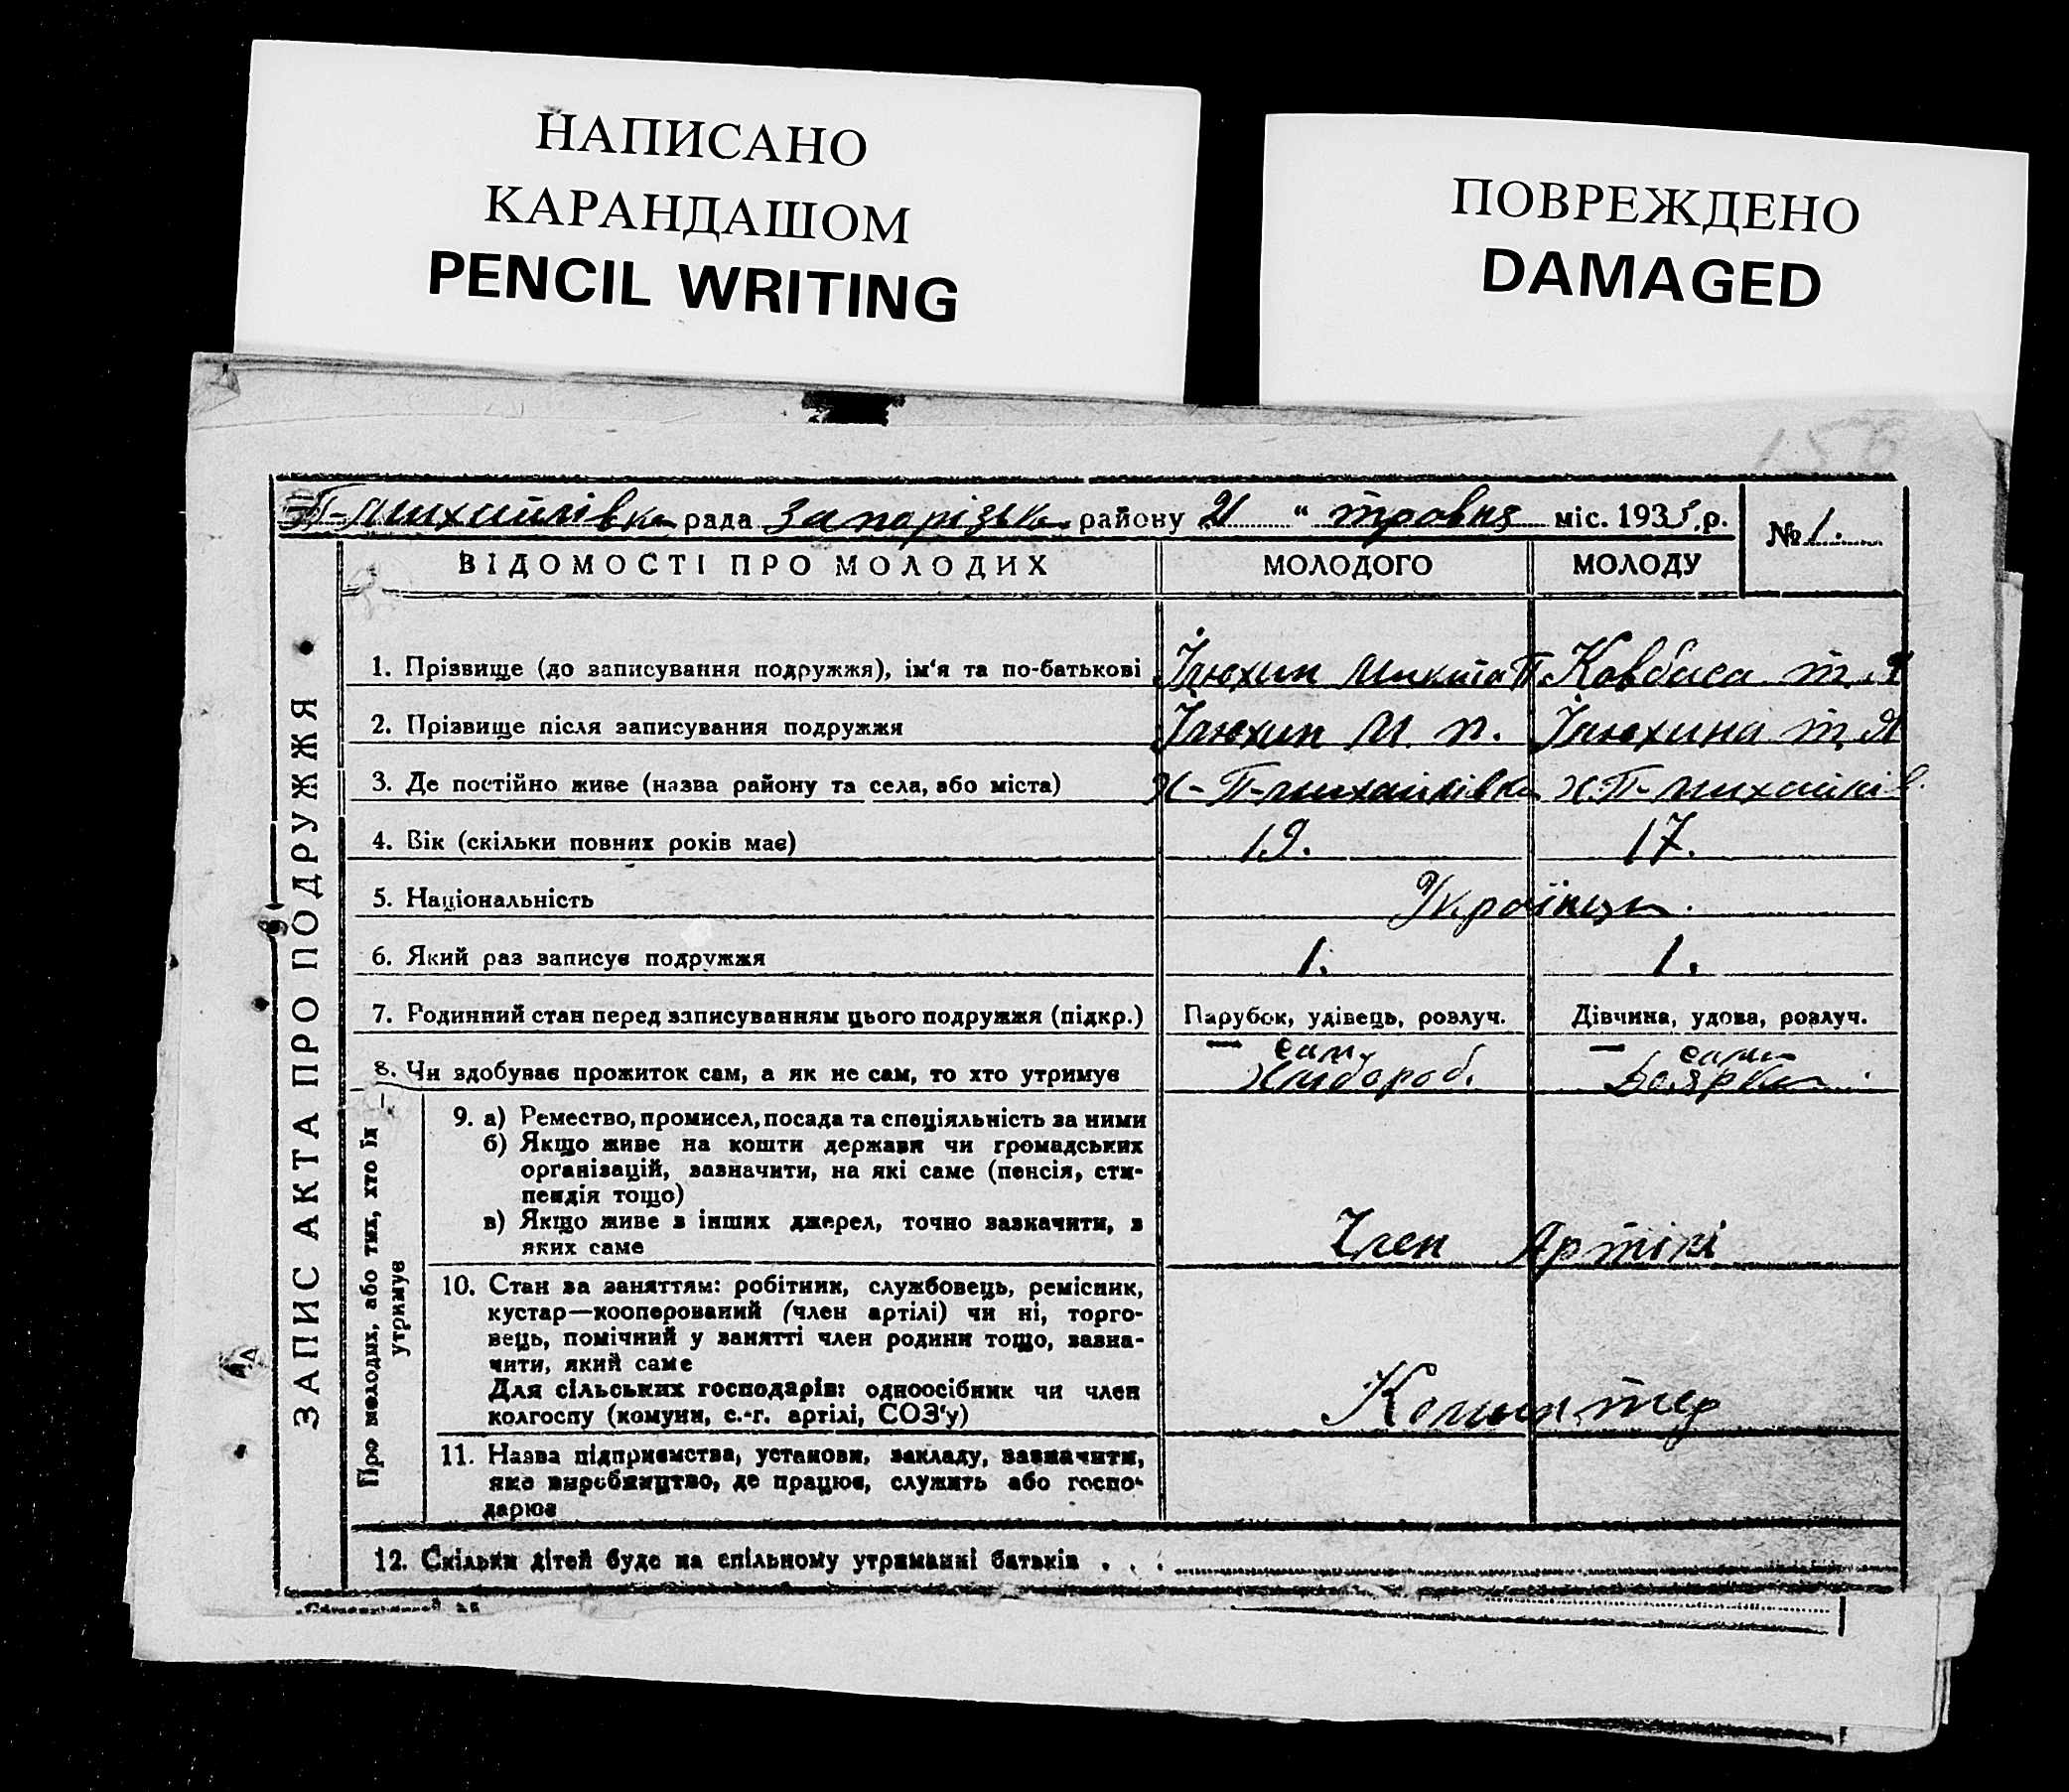 НАПИСАНО
КАРАНДАШОМ
PENCIL WRITING
ПОВРЕЖДЕНО
DAMAGED
П-Михайлівка рада Запорізька району 21 " травня міс. 1933 р.
№ 1.
ЗАПИС АКТА ПРО ПОДРУЖЖЯ
ВІДОМОСТІ ПРО МОЛОДИХ МОЛОДОГО МОЛОДУ
1. Прізвище (до записування подружжя), ім'я та по-батькові Ілюхин Микита П Ковбаса Т. Я
2. Прізвище після записування подружжя Ілюхин М. П. Ілюхина Т. Я
3. Де постійно живе (назва району та села, або міста) х-П-Михайлівка х. П-Михайлів.
4. Вік (скільки повних років має) 19. 17.
5. Національність Українци.
6. Який раз записує подружжя 1. 1.
7. Родинний стан перед записуванням цього подружжя (підкр.) Парубок, удівець, розлуч. Дівчина, удова, розлуч.
8. Чи здобуває прожиток сам, а як не сам, то хто утримує сам, Хлібороб. сама Доярка.
Про молодих, або тих, хто їх утримує
9. а) Ремество, промисел, посада та спеціяльність за ними
б) Якщо живе на кошти держави чи громадських
організацій, зазначити, на які саме (пенсія, сти-
пендія тощо)
в) Якщо живе з інших джерел, точно зазначити, з
яких саме Член Артілі
10. Стан за заняттям: робітник, службовець, ремісник,
кустар—кооперований (член артілі) чи ні, торго-
вець, помічний у занятті член родини тощо, зазна-
чити, який саме
Для сільських господарів: одноосібник чи член
колгоспу (комуни, с.-г. артілі, СОЗ'у)
11. Назва підприємства, установи, закладу, зазначити,
яке виробництво, де працює, служить або госпо-
дарює
12. Скільки дітей буде на спільному утриманні батьків . . .